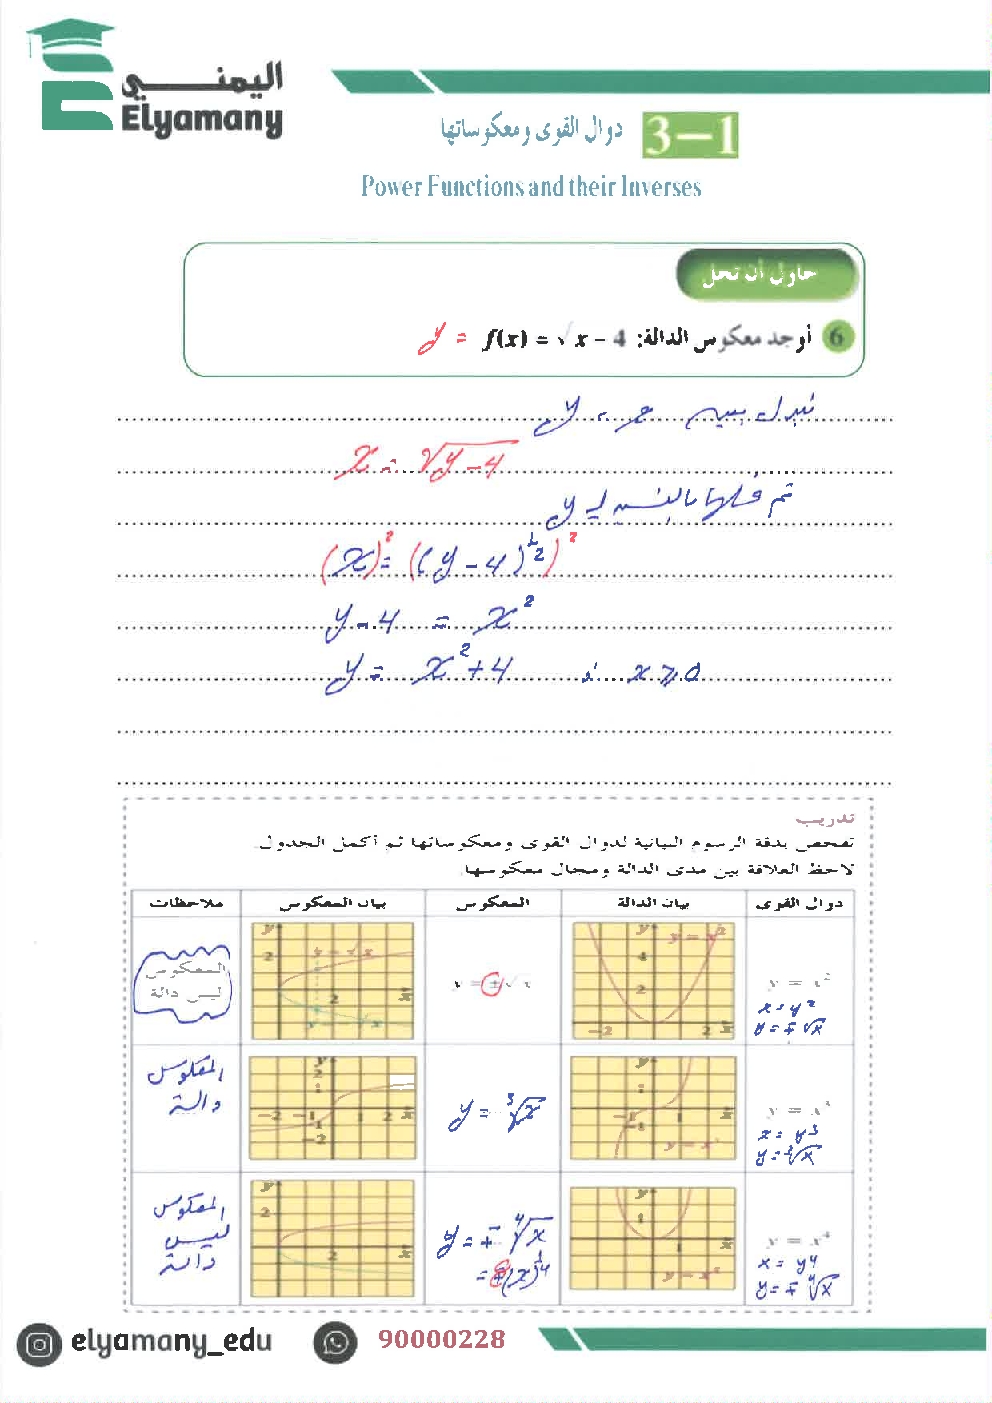 اليمني
Elyamany
3-1 دوال القوى ومعكوساتها
Power Functions and their Inverses
حاول أن تحل
6 أوجد معكوس الدالة: f(x) = √x - 4 y =
نبدل بين x ، y
x = √y-4
ثم نحلها بالنسبة لـ y
(x)² = ((y-4)^½)²
y-4 = x²
y = x²+4 ; x ≥ 0
تدريب
تفحص بدقة الرسوم البيانية لدوال القوى ومعكوساتها ثم أكمل الجدول.
لاحظ العلاقة بين مدى الدالة ومجال معكوسها.
دوال القوى بيان الدالة المعكوس بيان المعكوس ملاحظات
y = x²
x = y²
y = ∓√x
y = x²
y = ±√x
y = √x
المعكوس
ليس دالة
y = x³
x = y3
y = ³√x
y = x³
y = ³√x
المعكوس
دالة
y = x⁴
x = y4
y = ∓⁴√x
y = x⁴
y = ∓ ⁴√x
= ±(x)^¼
المعكوس
ليس
دالة
elyamany_edu 90000228